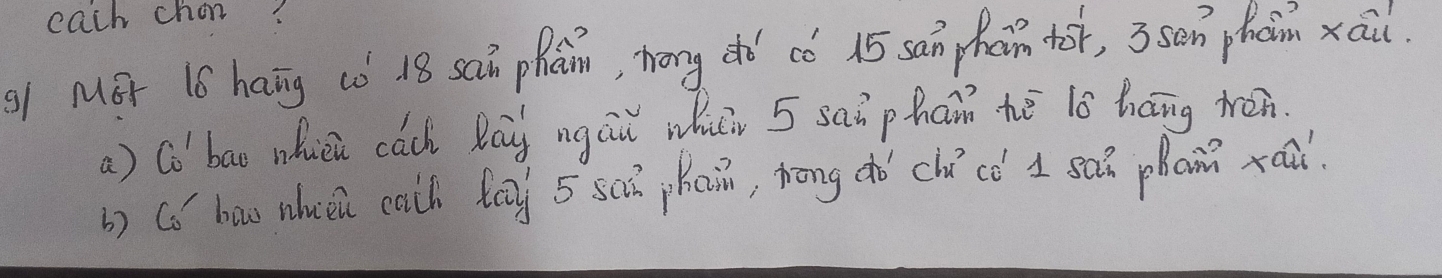 cách chọn ?
9/ Một lô hàng có 18 sản phẩm, trong đó có 15 sản phẩm tốt, 3 sản phẩm xấu.
a) Có bao nhiêu cách lấy ngẫu nhiên 5 sản phẩm từ lô hàng trên.
b) Có bao nhiêu cách lấy 5 sản phẩm, trong đó chỉ có 1 sản phẩm xấu.